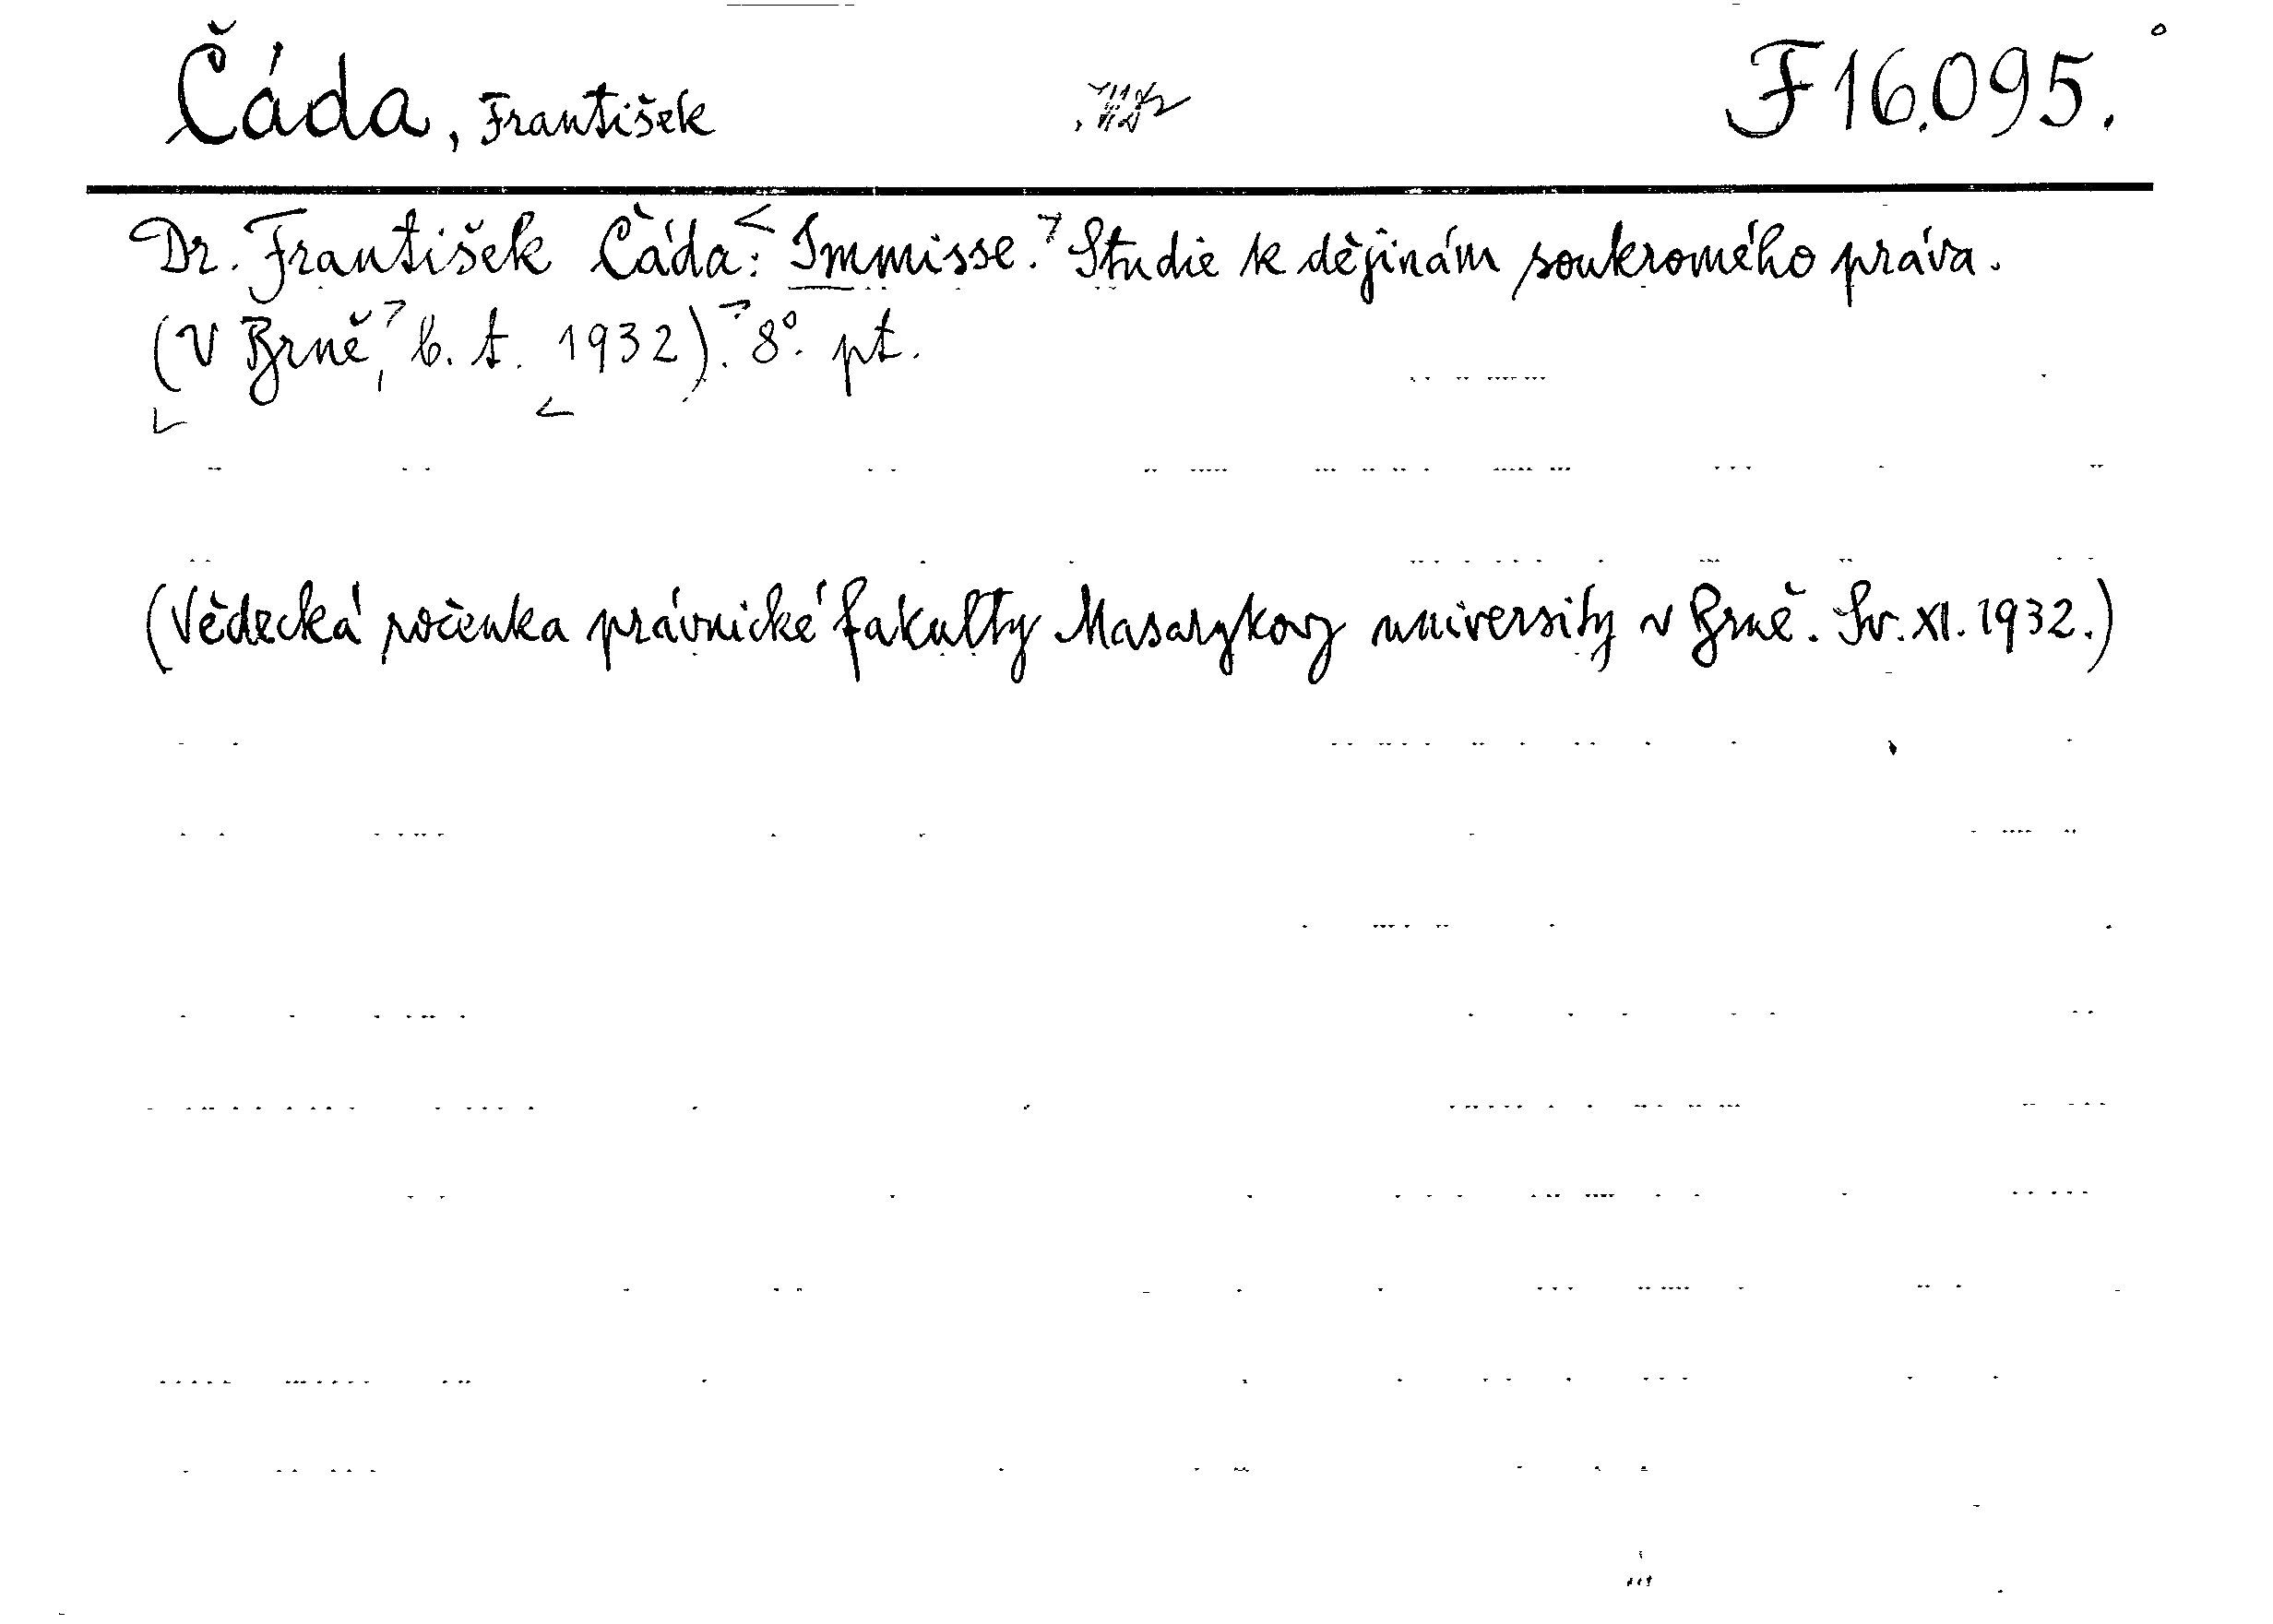 Čáda, František F 16.095.
Dr. František Čáda: Immisse. Studie k dějinám soukromého práva.
(V Brně, b. t. 1932). 8°. pt.
(Vědecká ročenka právnické fakulty Masarykovy university v Brně. Sv. XI. 1932.)